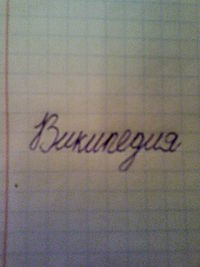 Википедия